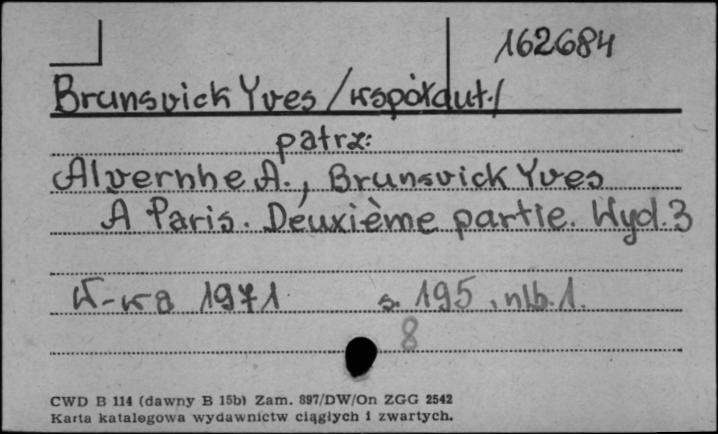 162684
Brunsvick Yves /współaut./
patrz:
Alvernhe A., Brunsvick Yves
A Paris. Deuxième partie. Wyd. 3
W-wa 1971 s. 195, nlb. 1.
8
CWD B 114 (dawny B 15b) Zam. 897/DW/On ZGG 2542
Karta katalogowa wydawnictw ciągłych i zwartych.